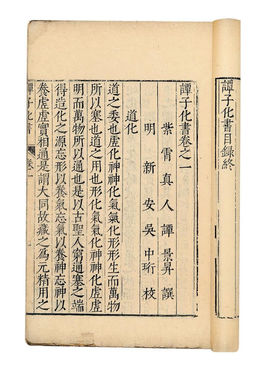 譚子化書目錄終
譚子化書卷之一
紫霄真人譚景昇撰
明新安吳中珩校
道化
道之委也虛化神神化氣氣化形形生而萬物
所以塞也道之用也形化氣氣化神神化虛虛
明而萬物所以通也是以古聖人窮通塞之端
得造化之源忘形以養氣忘氣以養神忘神以
養虛虛實相通是謂大同故藏之為元精用之
譚子化書
卷一